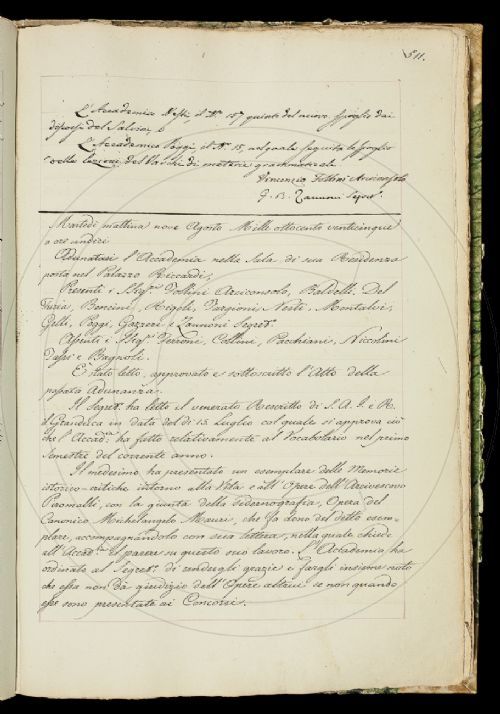 511.
L'Accademico Nesti, il N.º 157 quinto del nuovo spoglio dai
discorsi del Salvini, e
L'Accademico Poggi, il N.º 15, nel quale seguita lo spoglio
delle lezioni del Varchi di materie grammaticali.
Vincenzio Follini Arciconsolo
G. B. Zannoni Segret.º
Martedì mattina nove Agosto Mille ottocento venticinque
a ore undici
Adunatasi l'Accademia nella Sala di sua Residenza
posta nel Palazzo Riccardi,
Presenti i SS.ri Follini Arciconsolo, Baldelli, Del
Furia, Bencini, Rigoli, Targioni, Nesti, Montalvi,
Gelli, Poggi, Gazzeri e Zannoni Segret.º
Assenti i SS.ri Ferroni, Collini, Pacchiani, Niccolini
Tassi e Bagnoli.
È stato letto, approvato e sottoscritto l'Atto della
passata Adunanza.
Il Segret.º ha letto il venerato Rescritto di S. A. I. e R.
il Granduca in data del dì 15 Luglio col quale si approva ciò
che l'Accad.ª ha fatto relativamente al Vocabolario nel primo
semestre del corrente anno.
Il medesimo ha presentato un esemplare delle Memorie
istorico-critiche intorno alla Vita e all'Opere dell'Arcivescovo
Piromalli, con la giunta della Sidernografia, Opera del
Canonico Michelangelo Macrì, che fa dono del detto esem-
plare, accompagnandolo con sua lettera, nella quale chiede
all'Accad.ª il parere su questo suo lavoro. L'Accademia ha
ordinato al Segret.º di rendergli grazie e fargli insieme noto
che essa non dà giudizio dell'Opere altrui se non quando
esse sono presentate ai Concorsi.